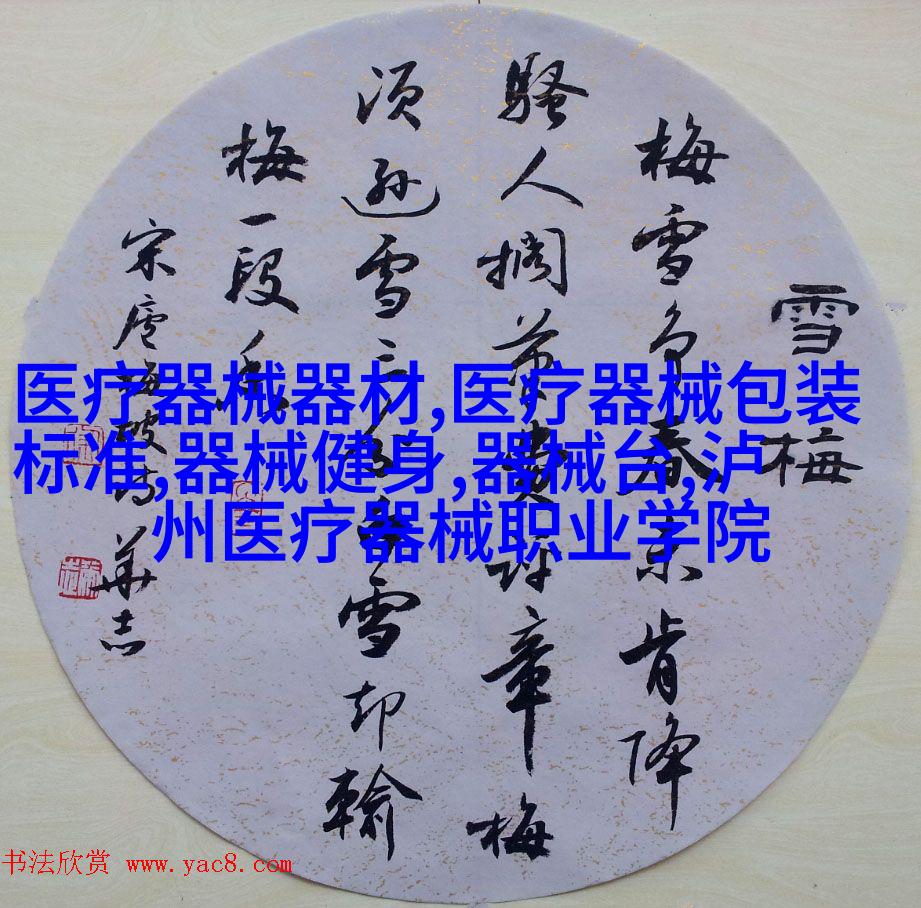 医疗器械器材,医疗器械包装
标准,器械健身,器械台,泸
州医疗器械职业学院
雪梅
梅雪争春未肯降
骚人搁笔费评章梅
须逊雪三分白雪却输
梅一段香
宋卢梅坡诗 华志
书法欣赏 www.yac8.com